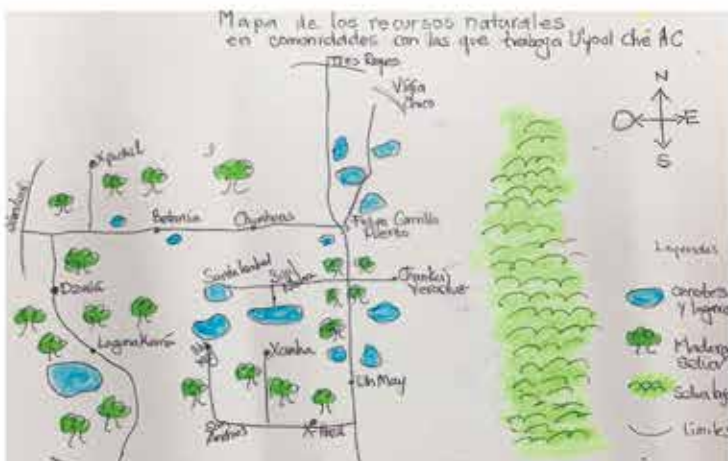 Mapa de los recursos naturales
en comunidades con las que trabaja U'yool Ché AC
Tres Reyes
Vigía
Chico
N
O E
S
X-pichil
Betania
Felipe Carrillo
Puerto
Santa Isabel
San
Chankaj
Veracruz
Dzulá
Laguna Kaná
Xconha
Uh May
San
Andrés
Leyendas
y laguna
Madera
Selva
Selva baja
Límites